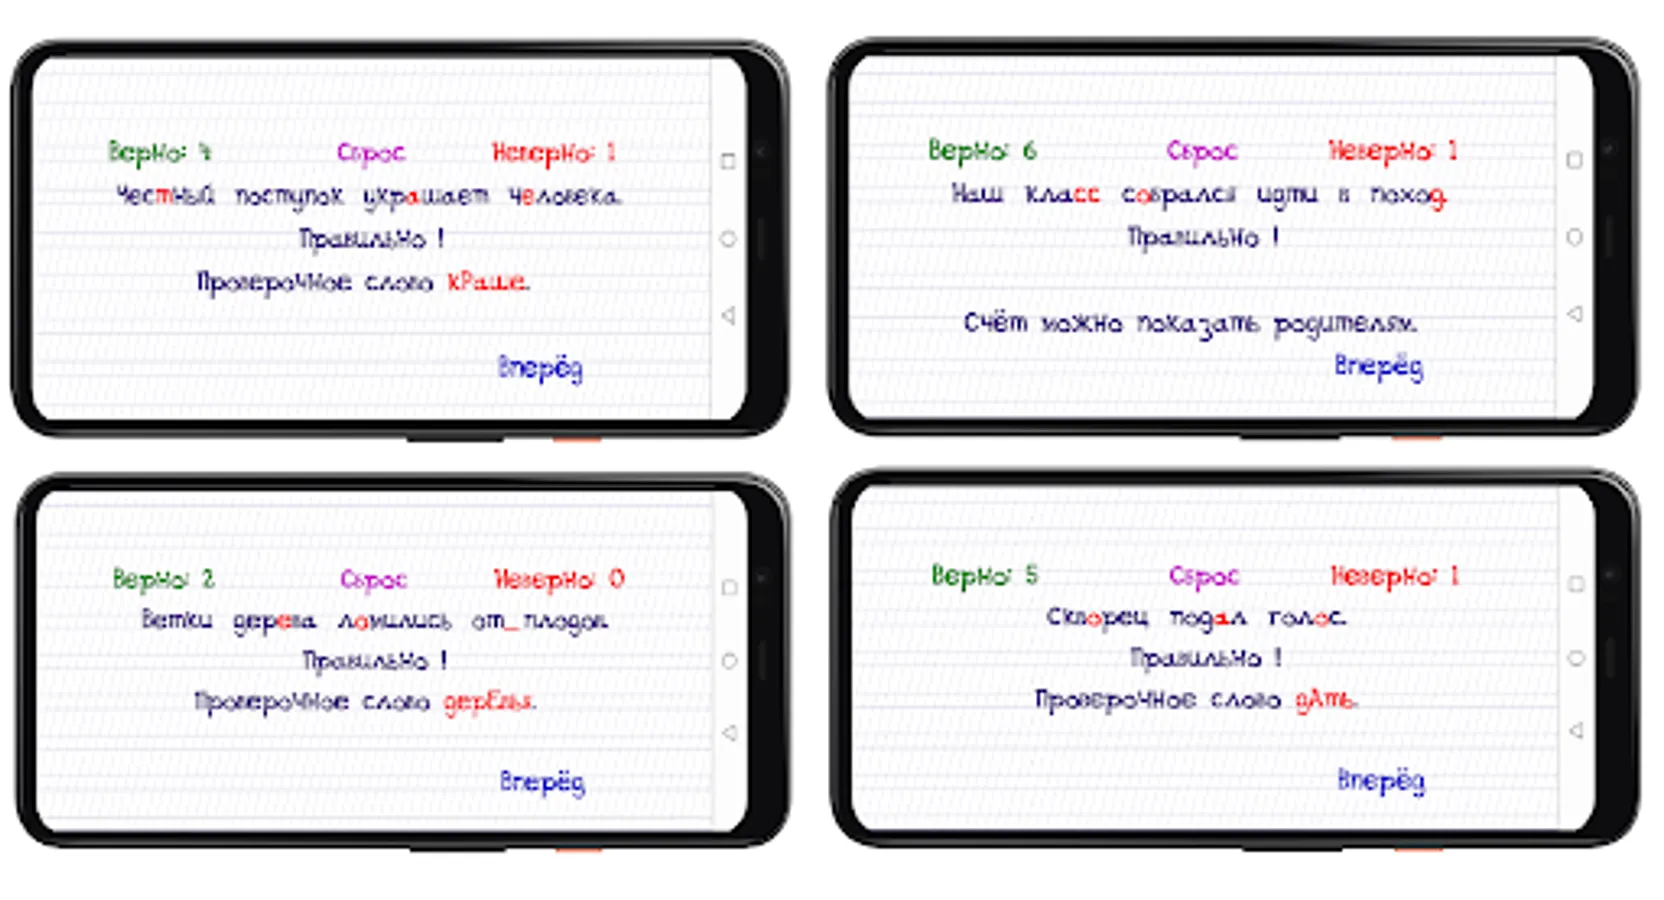 Верно: 4 Сброс Неверно: 1
Честный поступок украшает человека.
Правильно !
Проверочное слово кРаше.
Вперёд
Верно: 6 Сброс Неверно: 1
Наш класс собрался идти в поход.
Правильно !
Счёт можно показать родителям.
Вперёд
Верно: 2 Сброс Неверно: 0
Ветки дерева ломились от_плодов.
Правильно !
Проверочное слово дерЕвья.
Вперёд
Верно: 5 Сброс Неверно: 1
Скворец подал голос.
Правильно !
Проверочное слово дАть.
Вперёд